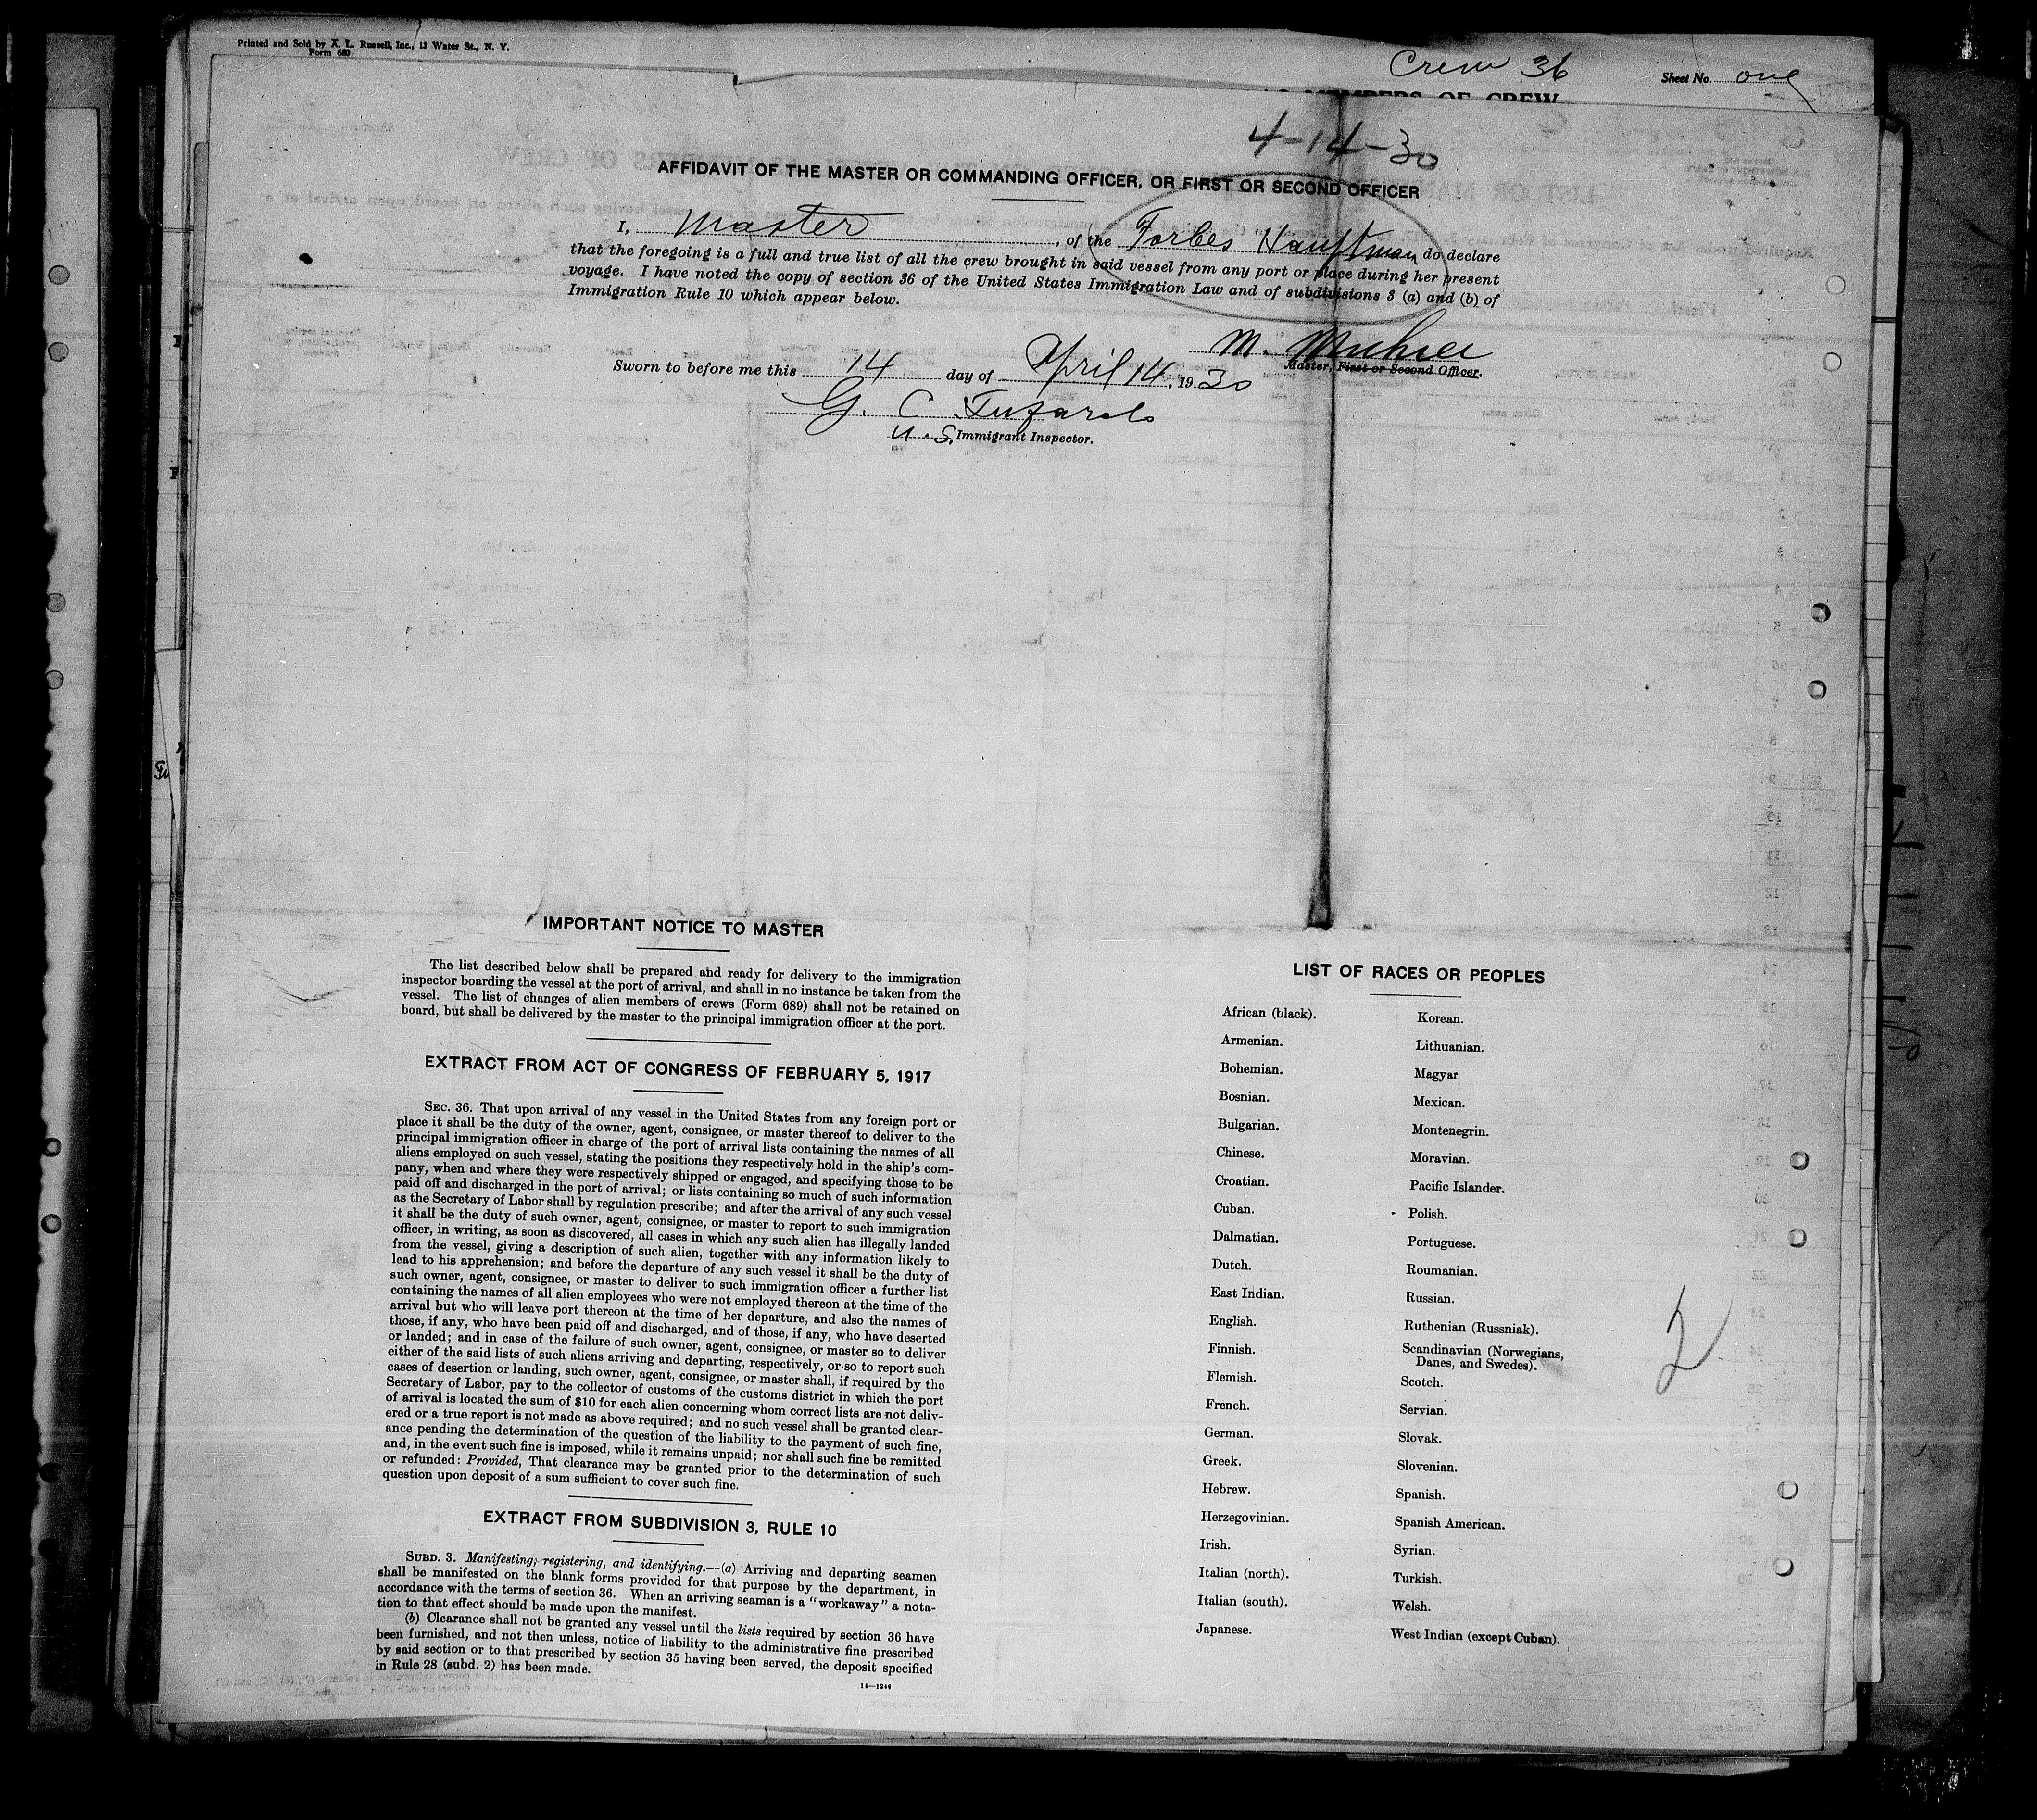 Printed and Sold by A. L. Russell, Inc., 13 Water St., N. Y.
Form 680
Crew 36
Sheet No. one
MEMBERS OF CREW
4-14-30
AFFIDAVIT OF THE MASTER OR COMMANDING OFFICER, OR FIRST OR SECOND OFFICER
I, Master, of the Forbes Hauptman do declare
that the foregoing is a full and true list of all the crew brought in said vessel from any port or place during her present
voyage. I have noted the copy of section 36 of the United States Immigration Law and of subdivisions 3 (a) and (b) of
Immigration Rule 10 which appear below.
M.
Master, First or Second Officer.
Sworn to before me this 14 day of April 14, 1930
G. C.
U. S. Immigrant Inspector.
IMPORTANT NOTICE TO MASTER
The list described below shall be prepared and ready for delivery to the immigration
inspector boarding the vessel at the port of arrival, and shall in no instance be taken from the
vessel. The list of changes of alien members of crews (Form 689) shall not be retained on
board, but shall be delivered by the master to the principal immigration officer at the port.
EXTRACT FROM ACT OF CONGRESS OF FEBRUARY 5, 1917
SEC. 36. That upon arrival of any vessel in the United States from any foreign port or
place it shall be the duty of the owner, agent, consignee, or master thereof to deliver to the
principal immigration officer in charge of the port of arrival lists containing the names of all
aliens employed on such vessel, stating the positions they respectively hold in the ship's com-
pany, when and where they were respectively shipped or engaged, and specifying those to be
paid off and discharged in the port of arrival; or lists containing so much of such information
as the Secretary of Labor shall by regulation prescribe; and after the arrival of any such vessel
it shall be the duty of such owner, agent, consignee, or master to report to such immigration
officer, in writing, as soon as discovered, all cases in which any such alien has illegally landed
from the vessel, giving a description of such alien, together with any information likely to
lead to his apprehension; and before the departure of any such vessel it shall be the duty of
such owner, agent, consignee, or master to deliver to such immigration officer a further list
containing the names of all alien employees who were not employed thereon at the time of the
arrival but who will leave port thereon at the time of her departure, and also the names of
those, if any, who have been paid off and discharged, and of those, if any, who have deserted
or landed; and in case of the failure of such owner, agent, consignee, or master so to deliver
either of the said lists of such aliens arriving and departing, respectively, or so to report such
cases of desertion or landing, such owner, agent, consignee, or master shall, if required by the
Secretary of Labor, pay to the collector of customs of the customs district in which the port
of arrival is located the sum of $10 for each alien concerning whom correct lists are not deliv-
ered or a true report is not made as above required; and no such vessel shall be granted clear-
ance pending the determination of the question of the liability to the payment of such fine,
and, in the event such fine is imposed, while it remains unpaid; nor shall such fine be remitted
or refunded: Provided, That clearance may be granted prior to the determination of such
question upon deposit of a sum sufficient to cover such fine.
EXTRACT FROM SUBDIVISION 3, RULE 10
SUBD. 3. Manifesting, registering, and identifying.—(a) Arriving and departing seamen
shall be manifested on the blank forms provided for that purpose by the department, in
accordance with the terms of section 36. When an arriving seaman is a "workaway" a nota-
tion to that effect should be made upon the manifest.
(b) Clearance shall not be granted any vessel until the lists required by section 36 have
been furnished, and not then unless, notice of liability to the administrative fine prescribed
by said section or to that prescribed by section 35 having been served, the deposit specified
in Rule 28 (subd. 2) has been made.
14—1240
LIST OF RACES OR PEOPLES
African (black).
Armenian.
Bohemian.
Bosnian.
Bulgarian.
Chinese.
Croatian.
Cuban.
Dalmatian.
Dutch.
East Indian.
English.
Finnish.
Flemish.
French.
German.
Greek.
Hebrew.
Herzegovinian.
Irish.
Italian (north).
Italian (south).
Japanese.
Korean.
Lithuanian.
Magyar
Mexican.
Montenegrin.
Moravian.
Pacific Islander.
Polish.
Portuguese.
Roumanian.
Russian.
Ruthenian (Russniak).
Scandinavian (Norwegians,
Danes, and Swedes).
Scotch.
Servian.
Slovak.
Slovenian.
Spanish.
Spanish American.
Syrian.
Turkish.
Welsh.
West Indian (except Cuban).
2